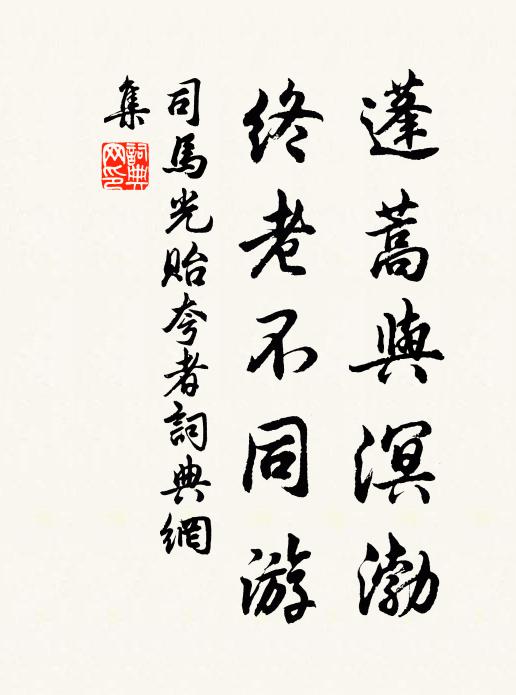 蓬蒿與溟渤
終老不同游
司馬光貽夸者詞典網
集
詞典
网印